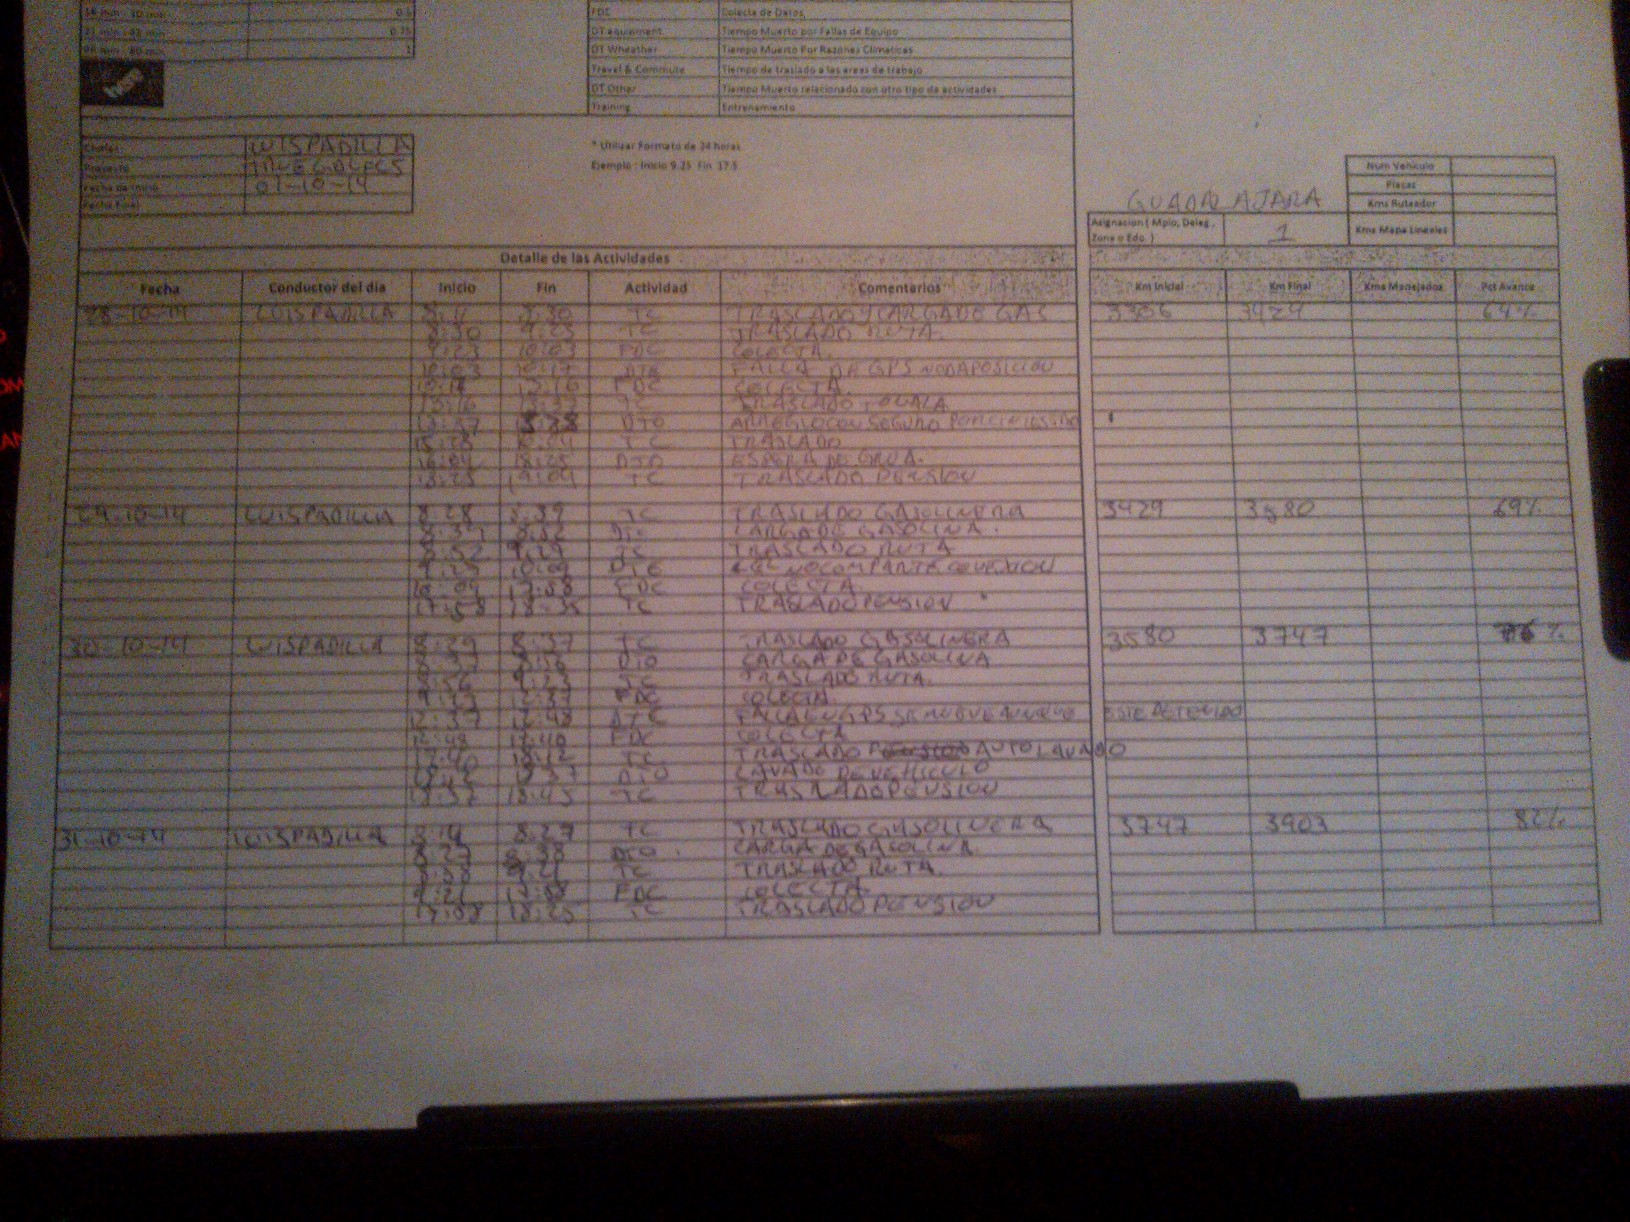 16 min - 30 min 0.5
31 min - 45 min 0.75
46 min - 60 min 1
FDC Colecta de Datos
DT equipment Tiempo Muerto por Fallas de Equipo
DT Wheather Tiempo Muerto Por Razones Climaticas
Travel & Commute Tiempo de traslado a las areas de trabajo
DT Other Tiempo Muerto relacionado con otro tipo de actividades
Training Entrenamiento
Chofer: LUISPADILLA
Proyecto
Fecha de Inicio 01-10-14
Fecha Final
* Utilizar Formato de 24 horas
Ejemplo : Inicio 9.25 Fin 17.5
GUADALAJARA
Num Vehiculo
Placas
Kms Ruteador
Kms Mapa Lineales
Asignacion ( Mpio, Deleg, Zona o Edo. ) 1
Detalle de las Actividades
Fecha Conductor del día Inicio Fin Actividad Comentarios Km Inicial Km Final Kms Manejados Pct Avance
28-10-14 LUISPADILLA 8:30 TC TRASLADO Y CARGA DE GAS 3306 3429 64%
8:30 9:23 TC TRASLADO RUTA.
9:23 10:03 FDC COLECTA.
10:03 10:17 DTE FALLA DE GPS NODAPOSICION
10:17 13:16 FDC COLECTA
13:16 TC TRASLADO
15:28 DTO ARREGLO CON SEGURO
15:28 16:04 TC TRASLADO
16:04 18:25 DTO ESPERA DE GRUA.
18:25 19:04 TC TRASLADO PENSION
29-10-14 LUISPADILLA 8:28 8:39 TC TRASLADO GASOLINERA 3429 3580 69%
8:39 8:52 DTO CARGA DE GASOLINA.
8:52 9:29 TC TRASLADO RUTA
9:29 10:09 DTE NOCOMPARTE CONEXION
10:09 17:58 FDC COLECTA
17:58 18:35 TC TRASLADO PENSION
30-10-14 LUISPADILLA 8:29 8:37 TC TRASLADO GASOLINERA 3580 3747 %
8:37 8:56 DTO CARGA DE GASOLINA
8:56 TC TRASLADO RUTA.
12:37 FDC COLECTA.
12:37 12:48 DTE FALLA EN GPS SE MUEVE AUNQUE ESTE DETENIDO
12:48 17:40 FDC COLECTA
17:40 TC TRASLADO AUTOLAVADO
DTO LAVADO DE VEHICULO
18:45 TC TRASLADO PENSION
31-10-14 LUISPADILLA 8:14 8:27 TC TRASLADO GASOLINERA 3747 3903 82%
8:38 DTO. CARGA DE GASOLINA.
8:38 9:21 TC TRASLADO RUTA.
9:21 17:58 FDC COLECTA
17:58 18:25 TC TRASLADO PENSION